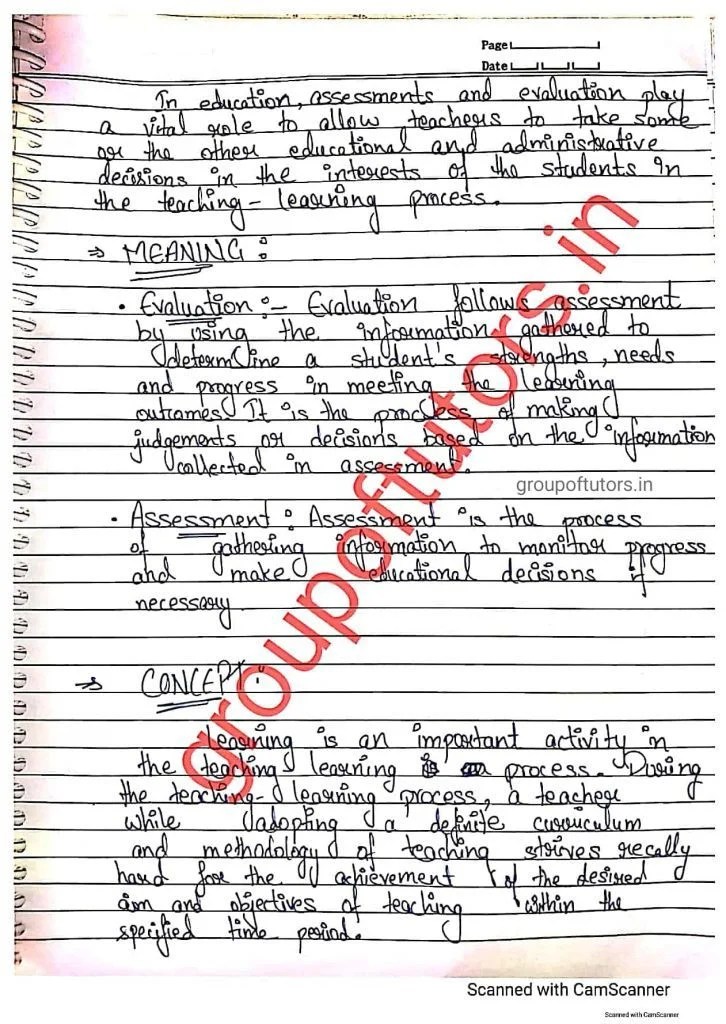 Page
Date
In education, assessments and evaluation play
a vital role to allow teachers to take some
or the other educational and administrative
decisions in the interests of the students in
the teaching - learning process.
⇒ MEANING :
• Evaluation :- Evaluation follows assessment
by using the information gathered to
determine a student's strengths, needs
and progress in meeting the learning
outcomes. It is the process of making
judgements or decisions based on the information
collected in assessment.
groupoftutors.in
• Assessment : Assessment is the process
of gathering information to monitor progress
and make educational decisions if
necessary.
⇒ CONCEPT :
Learning is an important activity in
the teaching learning process. During
the teaching- learning process, a teacher
while adopting a definite curriculum
and methodology of teaching strives recally
hard for the achievement of the desired
aim and objectives of teaching within the
specified time period.
groupoftutors.in
Scanned with CamScanner
Scanned with CamScanner